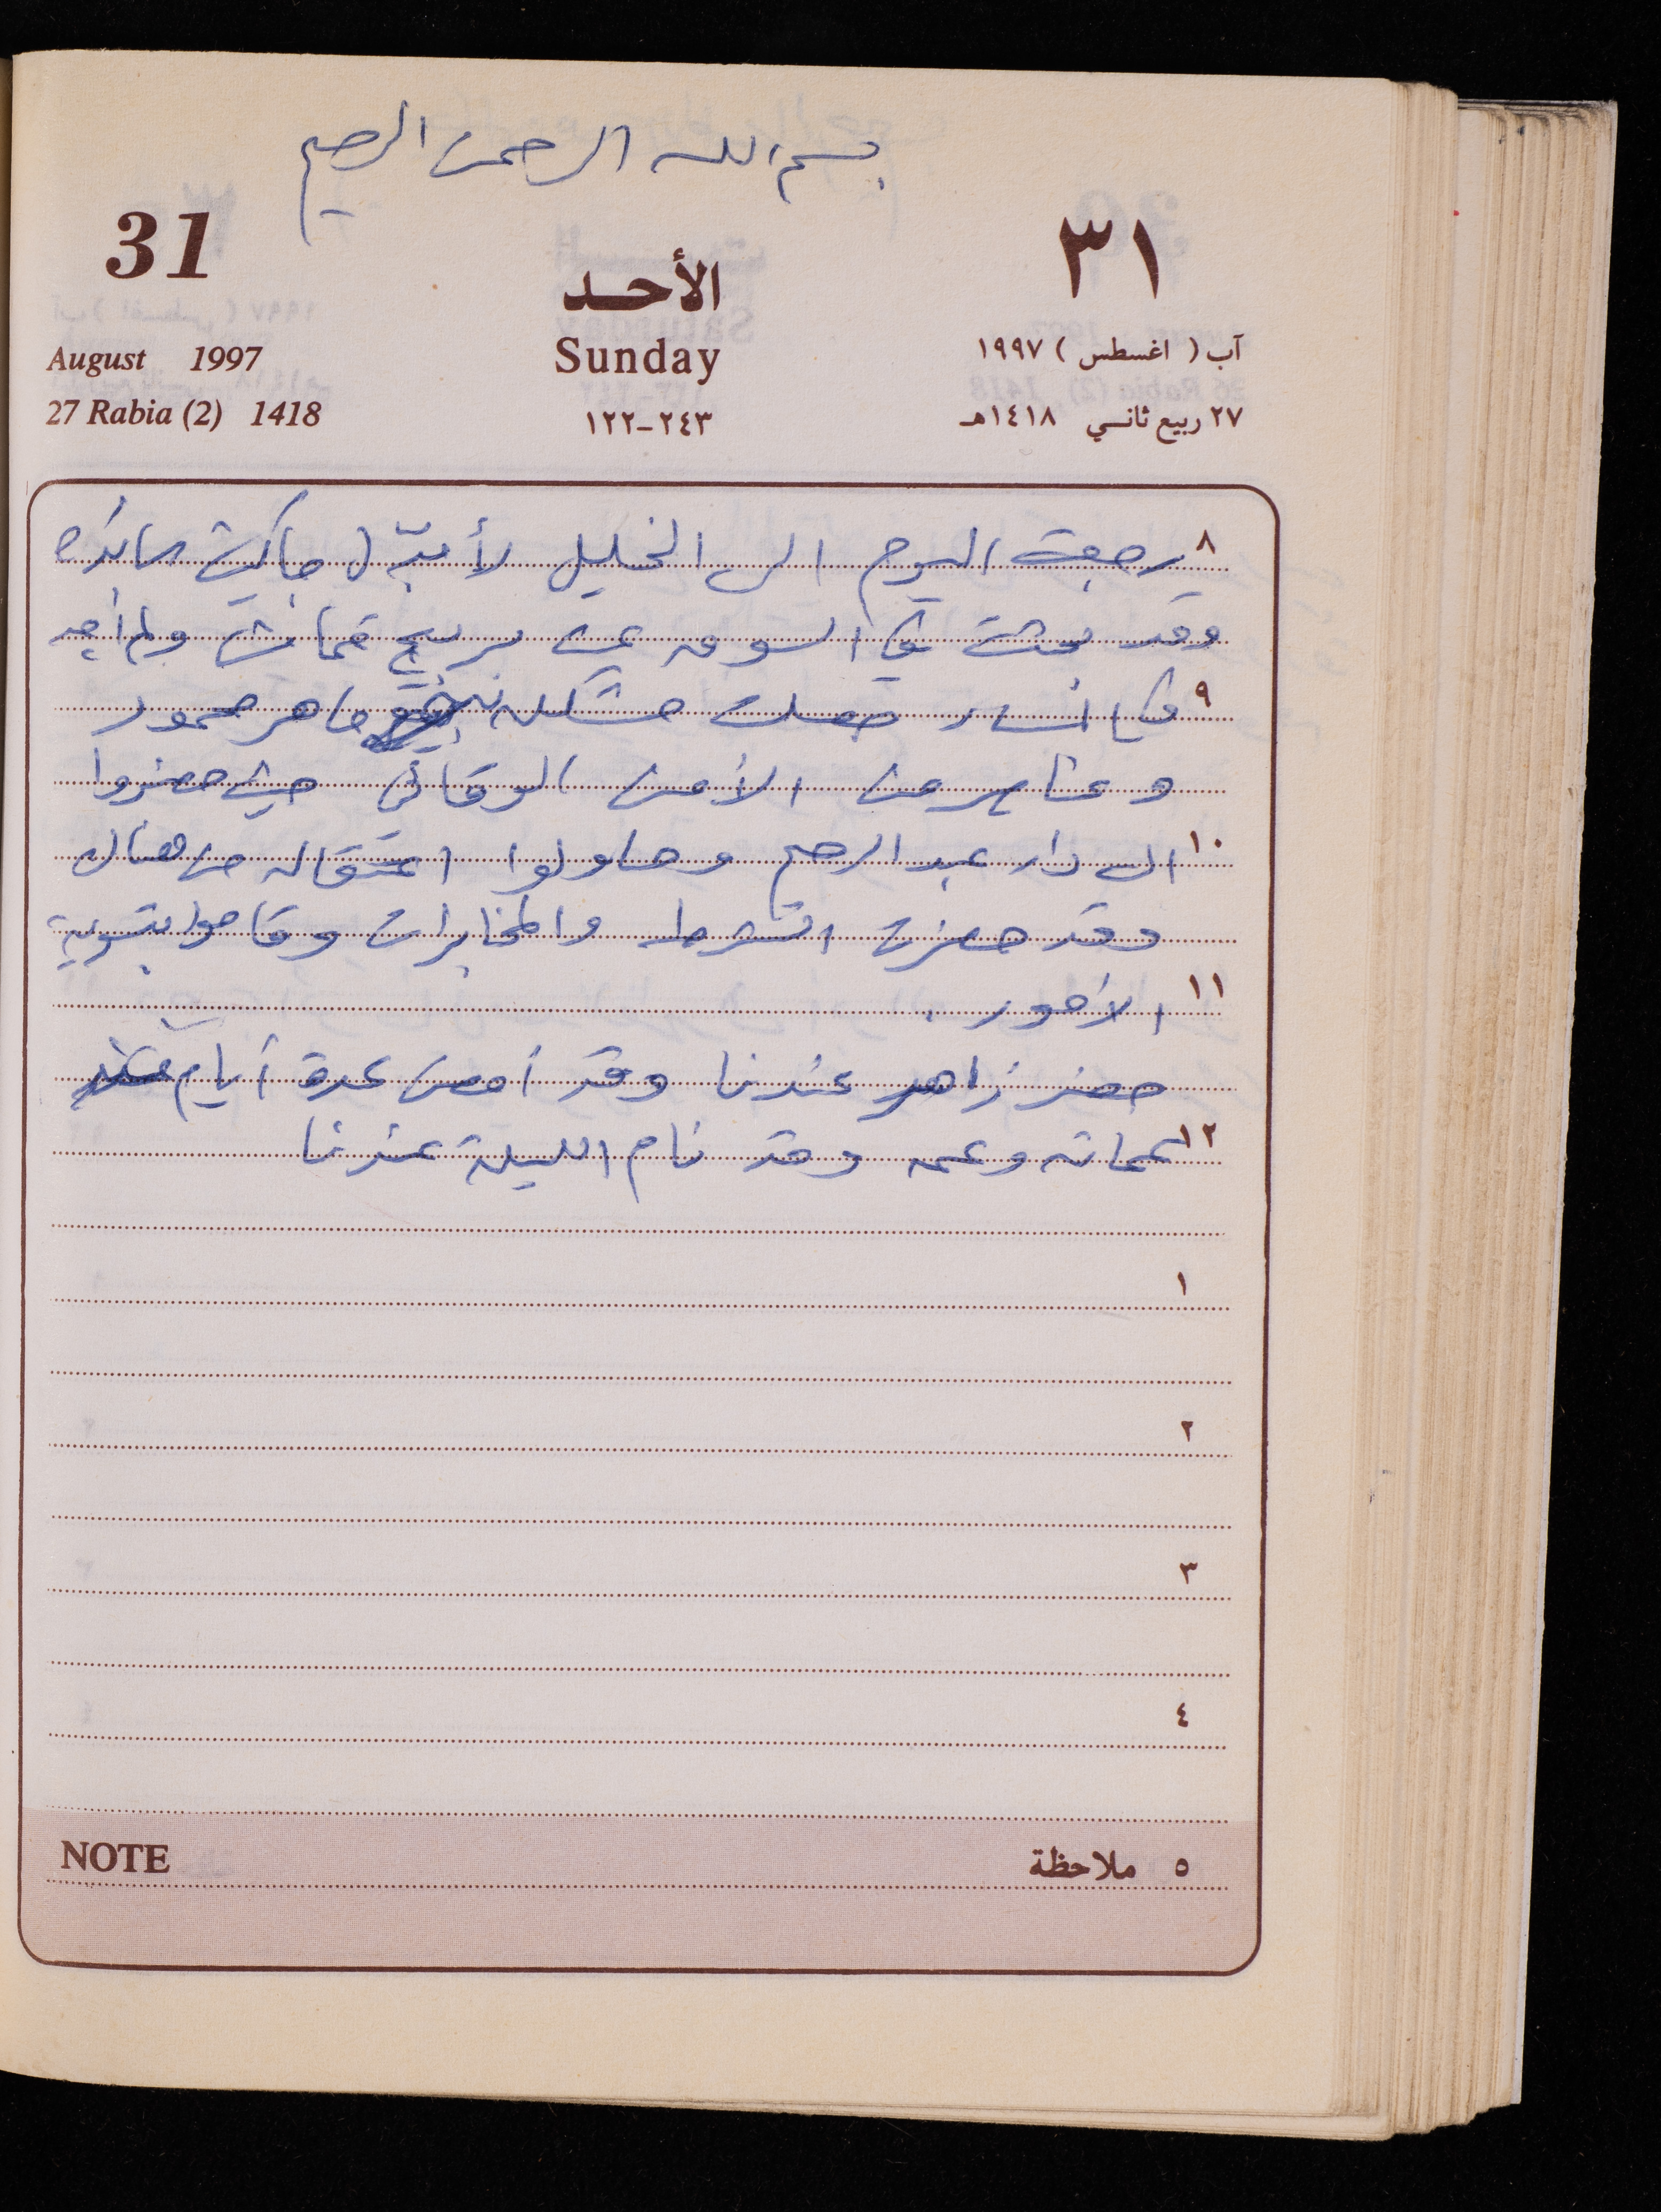 بسم الله الرحمن الرحيم
31
٣١
الأحد
August 1997
Sunday
آب ( اغسطس ) ١٩٩٧
27 Rabia (2) 1418
٢٤٣-١٢٢
٢٧ ربيع ثاني ١٤١٨هـ
٨ رجعت اليوم الى الخليل لأبدّل جاكيت
وقد بحثت في السوق عن قماش ولم أجد
٩ في المساء حصلت مشكلة ماهر محمود
وعناصر من الأمن الوقائي حيث حضروا
١٠ الى دار عبد الرحيم وحاولوا اعتقاله من هناك
وقد حضرت الشرطة والمخابرات وقاموا بتسوية
١١ الأمور .
حضر زاهر عندنا وقد أمضى عدة أيام عند
١٢ عماته وعمه وقد نام الليلة عندنا
١
٢
٣
٤
NOTE
٥ ملاحظة